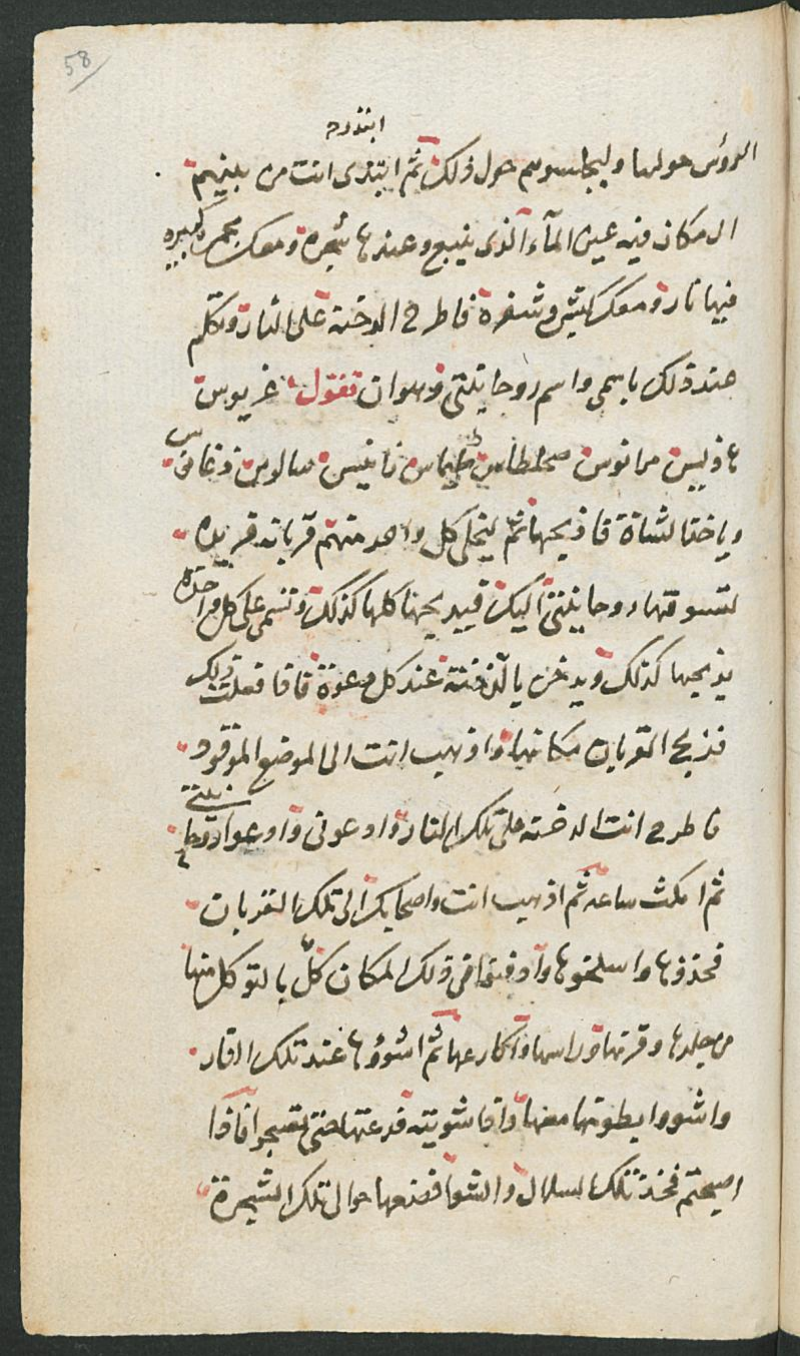 58
ابتدوه
الرؤس حولها وليجلسوهم حول ذلك ثم ابتدى انت من بينهم
الى مكان فيه عين المآء الذى ينبع وعندها شجرة ومعك مجمرة كبيره
فيها نار ومعك كبش وشفرة فاطرح الدخنه على النار وتكلم
عند ذلك باسمى واسم روحانيتى وهوان تقول
هاديس مرانوس
وياخذ الشاة فاذبحها ثم ليخلى كل واحد منهم قربانه قربه
لتسوقها روحانيتى اليك فيذبحها كلها كذلك وتسمى على كل واحدة
يذبحها كذلك ويدخن بالدخنة عند كل دعوة فاذا فعلت ذلك
فذبح القربان مكانها واذهب انت الى الموضع الموقود
فاطرح انت الدخنه على تلك النار وادعونى وادعوا روحانيتى
ثم امكث ساعه ثم اذهب انت واصحابك الى تلك القربان
فخذوها واسلخوها وادفنوا فى ذلك المكان كل
من جلدها وقرنها وراسها واكارعها ثم اشووها عند تلك النار
واشووا بطونها معها واذا شويته فدعها حتى تصبحوا فاذا
اصبحتم فخذ تلك السلال والشوا فضعها حوالى تلك الشجرة